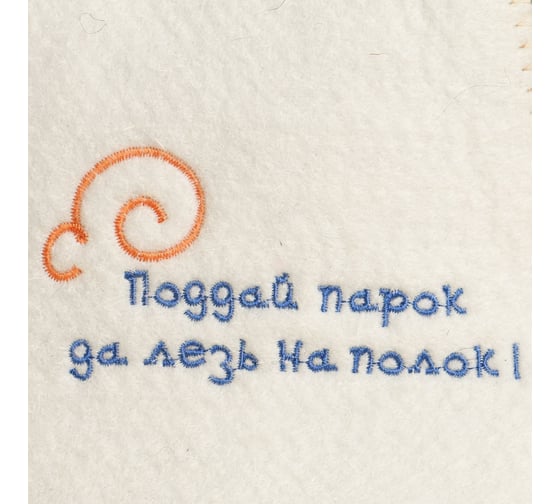 Поддай парок
да лезь на полок!